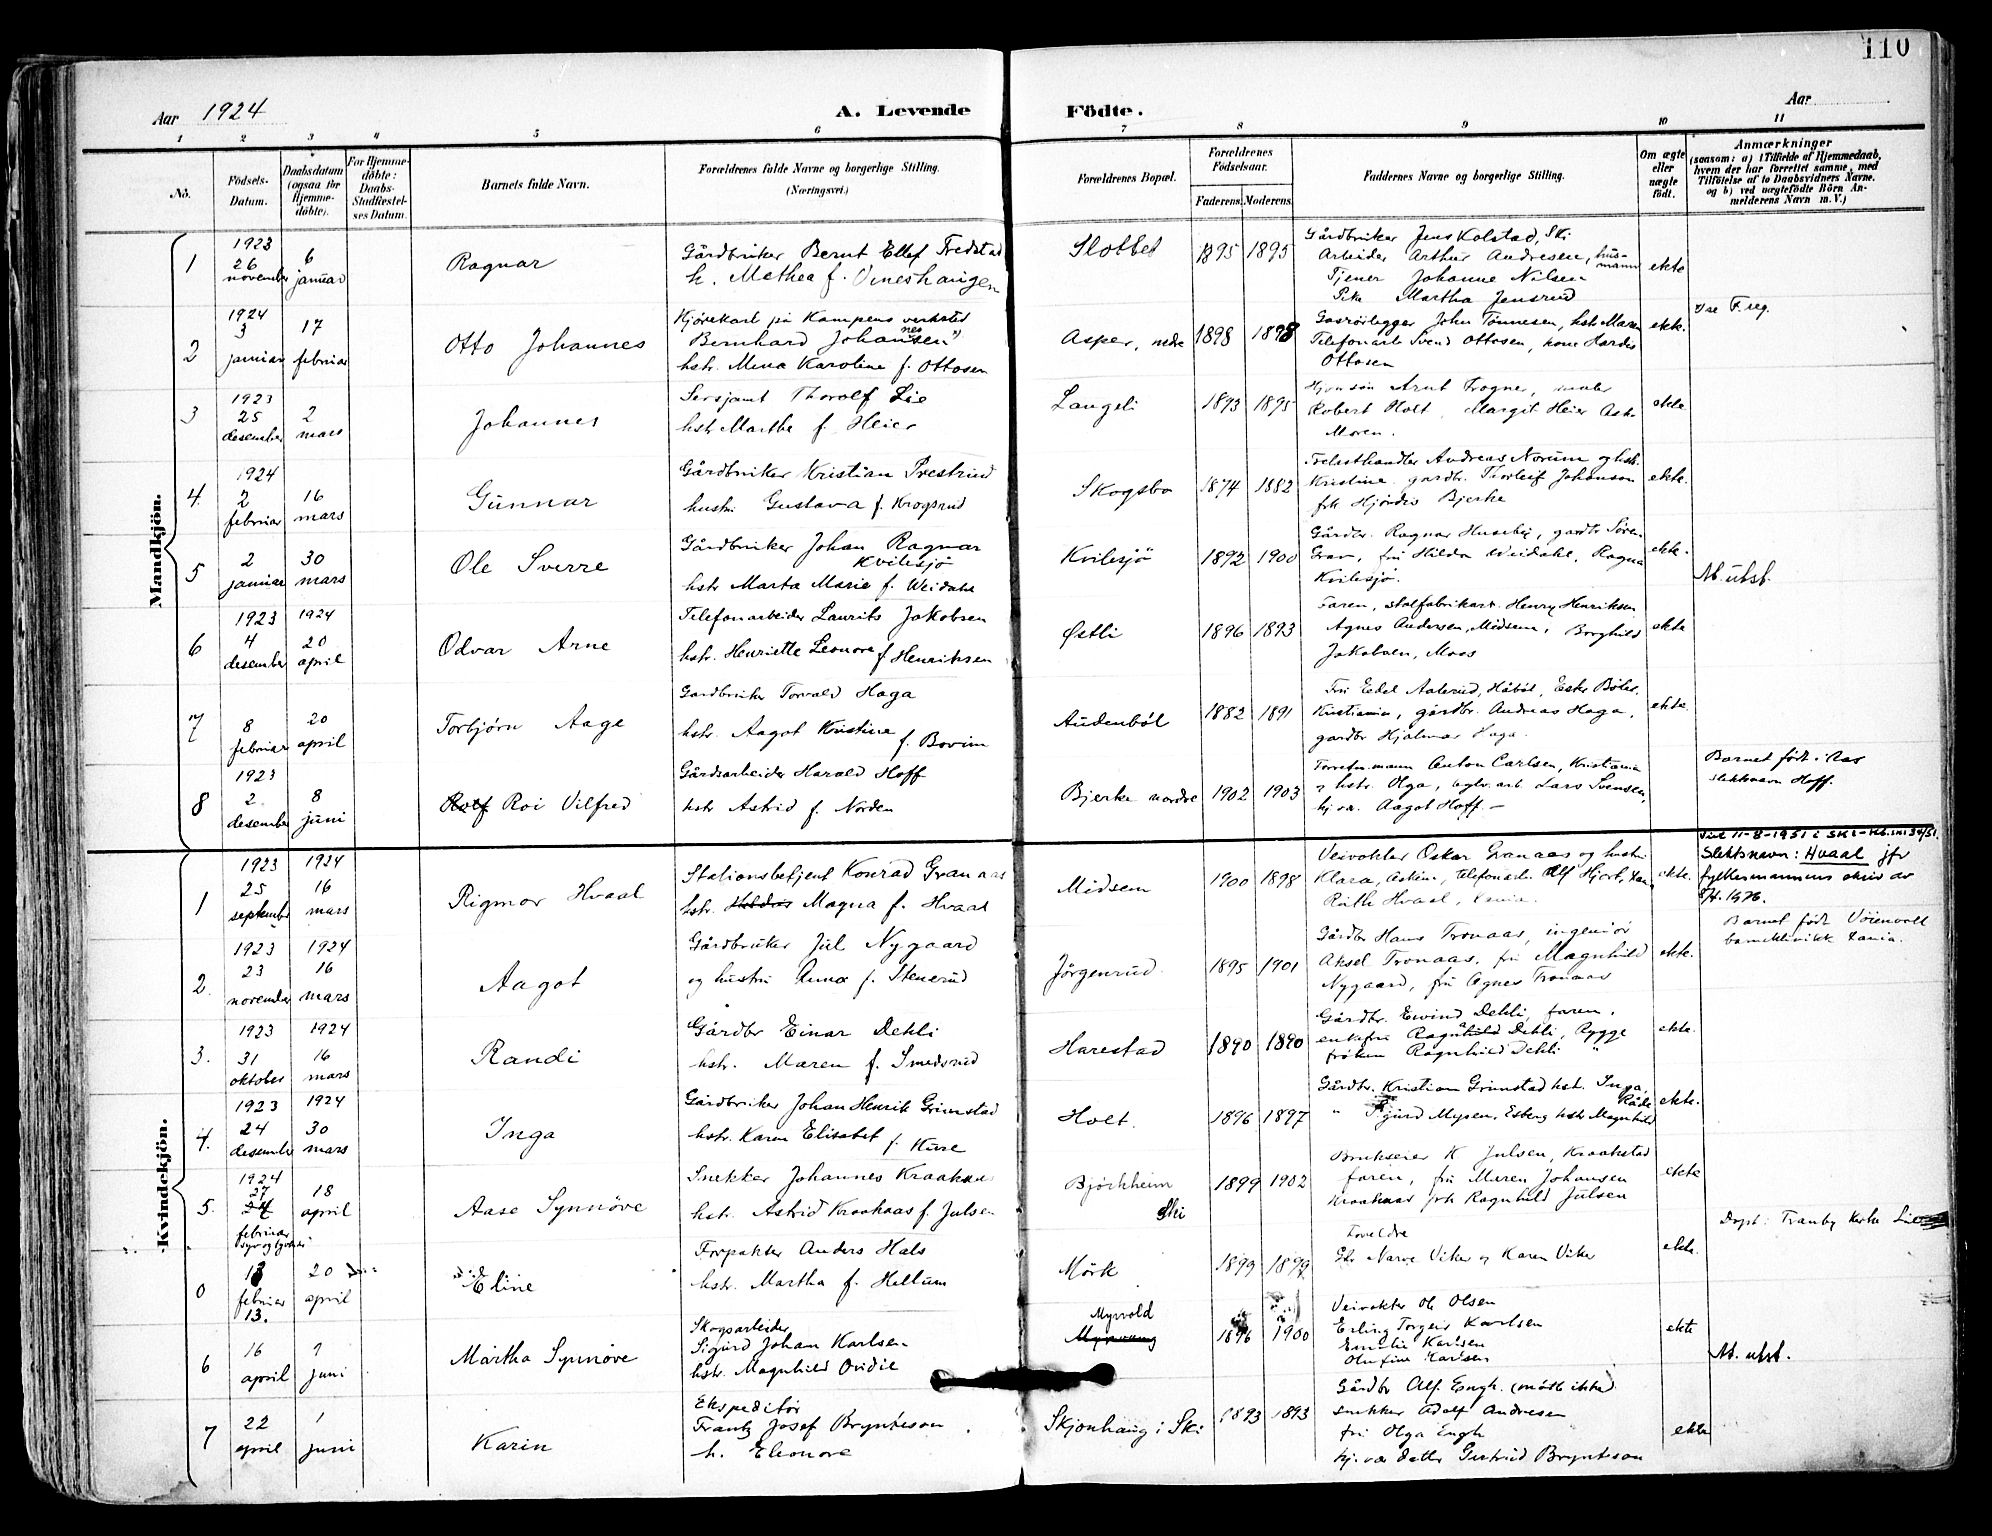 110
Aar 1924
A. Levende Födte.
Aar
1 2 3 4 5 6 7 8 9 10 11
No.
Födsels-Datum.
Daabsdatum (ogsaa for Hjemme-döbte).
For Hjemme-döbte: Daabs-Stadfæstel-ses Datum.
Barnets fulde Navn.
Forældrenes fulde Navne og borgerlige Stilling. (Næringsvei.)
Forældrenes Bopæl.
Forældrenes Födselsaar.
Faderens. Moderens.
Faddernes Navne og borgerlige Stilling.
Om ægte eller uægte födt.
Anmærkninger
(saasom: a) i Tilfælde af Hjemmedaab, hvem der har forrettet samme, med Tilföielse af to Daabsvidners Navne, og b) ved uægtefödte Börn An-melderens Navn m. V.)
Mandkjön.
1
1923 26 november
6 januar
Ragnar
Gårdbruker Bernt Ellef Fredstad
h. Methea f. Vineshaugen
Slottet
1895 1895
Gårdbruker Jens Kolstad, Ski
Arbeider Arthur Andresen, husmann
Tjener Johanne Nilsen
Pike Martha Jensrud
ekte
2
1924 3 januar
17 februar
Otto Johannes
Kjørekarl på Kampens verksted
Bernhard Johannesen
hstr. Mina Karoline f. Ottosen
Asper, nedre
1898 1898
Gasrørlegger John Tønnesen, hstr Maren
Telefonarb Svend Ottosen, kone Hardis
Ottosen
ekte.
3
1923 25 desember
2 mars
Johannes
Sersjant Thorolf Lie
hstr Marthe f. Heier
Langeli
1893 1895
Arnt Trogner, maler
Robert Holt, Margit Heier Ask
Moren.
ekte
4.
1924 2 februar
16 mars
Gunnar
Gårdbruker Kristian Prestrud
hustru Gustava f. Krogsrud
Skogsbo
1874 1882
Trelasthandler Andreas Norum og hstr.
Kristine gårdbr. Thorleif Johansen
frk Hjørdis Bjerke
ekte.
5
2 januar
30 mars
Ole Sverre
Gårdbruker Johan Ragnar
Kvilesjø
hstr Marta Marie f. Weidahl
Kvilesjø
1892 1900
Gårdbr. Ragnar Huseby, gardbr Søren
Gran, fru Hilda Weidahl, Ragna
Kvilesjø.
ekte.
At. utst.
6
1923 4 desember
1924 20 april
Odvar Arne
Telefonarbeider Laurits Jakobsen
hstr. Henriette Leonore f Henriksen
Østli
1896 1893
Faren, stolfabrikart. Henry Henriksen
Agnes Andersen, Midsem, Borghild
Jakobsen, Moss
ekte
7
8 februar
20 april
Torbjørn Aage
Gardbruker Torvald Haga
hstr. Aagot Kristine f. Bovim
Audenböl
1882 1891
Fru Edel Aalerud, Håböl, Ester Böler
Kristiania, gårdbr. Andreas Haga,
gardbr Hjalmar Haga.
ekte.
8
1923 2. desember
8 juni
Roi Vilfred
Gårdsarbeider Harald Hoff
hstr Astrid f. Norden
Bjerke nordre
1902 1903
Anton Carlsen, Kristiania
hstr. Olga, Lars Svensen,
Aagot Hoff. –
Barnet født i Aas
slektsnavn Hoff.
Kvindekjön.
1
1923 25 september
1924 16 mars
Rigmor Hvaal
Stationsbetjent Konrad Granaas
hstr. Magna f. Hvaal
Midsem
1900 1898
Veivokter Oskar Granaas og hustru
Klara, Askim, telefonarb. Alf Hjort,
Ruth Hvaal,
ekte.
11-8-1951 i Ski
Slektsnavn: Hvaal jfr
fylkesmannens skriv av
Barnet født Voienvoll
barneklinikk
2.
1923 23 november
1924 16 mars
Aagot
Gårdbruker Jul Nygaard
og hustru Anna f. Stenerud
Jörgenrud.
1895 1901
Gårdbr Hans Tronaas, ingeniør
Aksel Tronaas, fru Magnhild
Nygaard, fru Agnes Tronaas
ekte.
3.
1923 31 oktober
1924 16 mars
Randi
Gårdbr Einar Dehli
hstr. Maren f. Smedsrud
Harestad
1890 1890
Gårdbr. Eivind Dehli, faren,
enkefru Ragnhild Dehli, Rygge
frøken Ragnhild Dehli "
ekte.
4.
1923 24 desember
1924 30 mars
Inga
Gårdbruker Johan Henrik Grimstad
hstr. Karen Elisabet f. Kure
Holt.
1896 1897
Gårdbr. Kristian Grimstad hst. Inga, Råde
" Sigurd Mysen, Esberg hstr Magnhild
ekte.
5.
1924 27 februar
18 april
Aase Synnöve
Snekker Johannes Kraakaas
hstr. Astrid Kraakaas f. Julsen
Bjørkheim
Ski
1899 1902
Brukseier K Julsen, Kraakstad
faren, fru Maren Johansen
Kraakaas frk Ragnhild Julsen
ekte
0
februar 13.
20 april
Eline
Forpakter Anders Hals
hstr. Martha f. Hellum
Mörk
1899 1899
Foreldre
Gbr Narve Viker og Karen Viker
ekte.
Døpt: Tranby Kirke Lier
6
16 april
juni
Martha Synnöve
Skogsarbeider
Sigurd Johan Karlsen
hstr. Magnhild Ovidie
Myrvold
1896 1900
Veivokter Ole Olsen
Erling Torgeir Karlsen
Emilie Karlsen
Olufine Karlsen
ekte
At. utst.
7
22 april
1 juni
Karin
Ekspeditör
Frantz Josef Bryntesson
h. Eleonora
Skjonhaug i Ski
1893 1893
Gårdbr Alf. Engh. (møtte ikke)
snekker Adolf Andresen
fru Olga Engh
hj. vær datter Gertrud Bryntesson
ekte